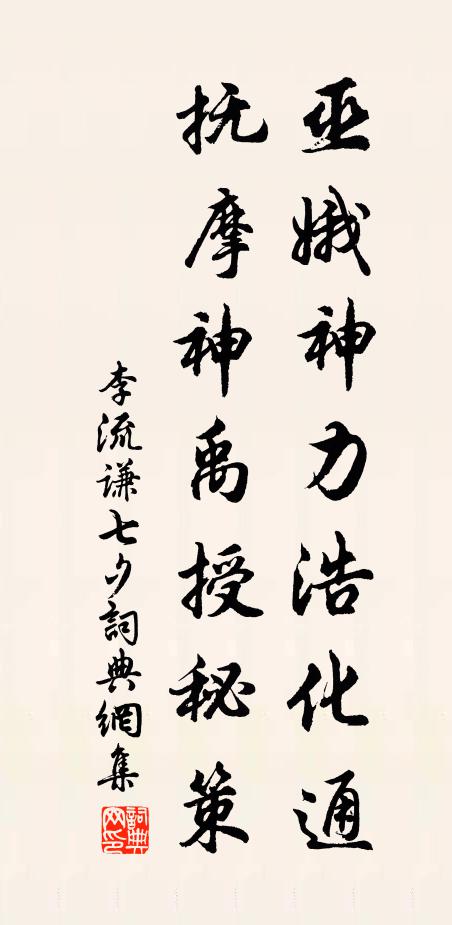 巫娥神力浩化通
抚摩神禹授秘策
李流謙七夕詞典網集
詞典网印